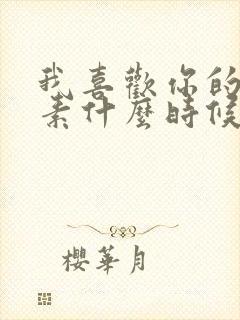 我喜歡你的
素什麼時候
櫻華月